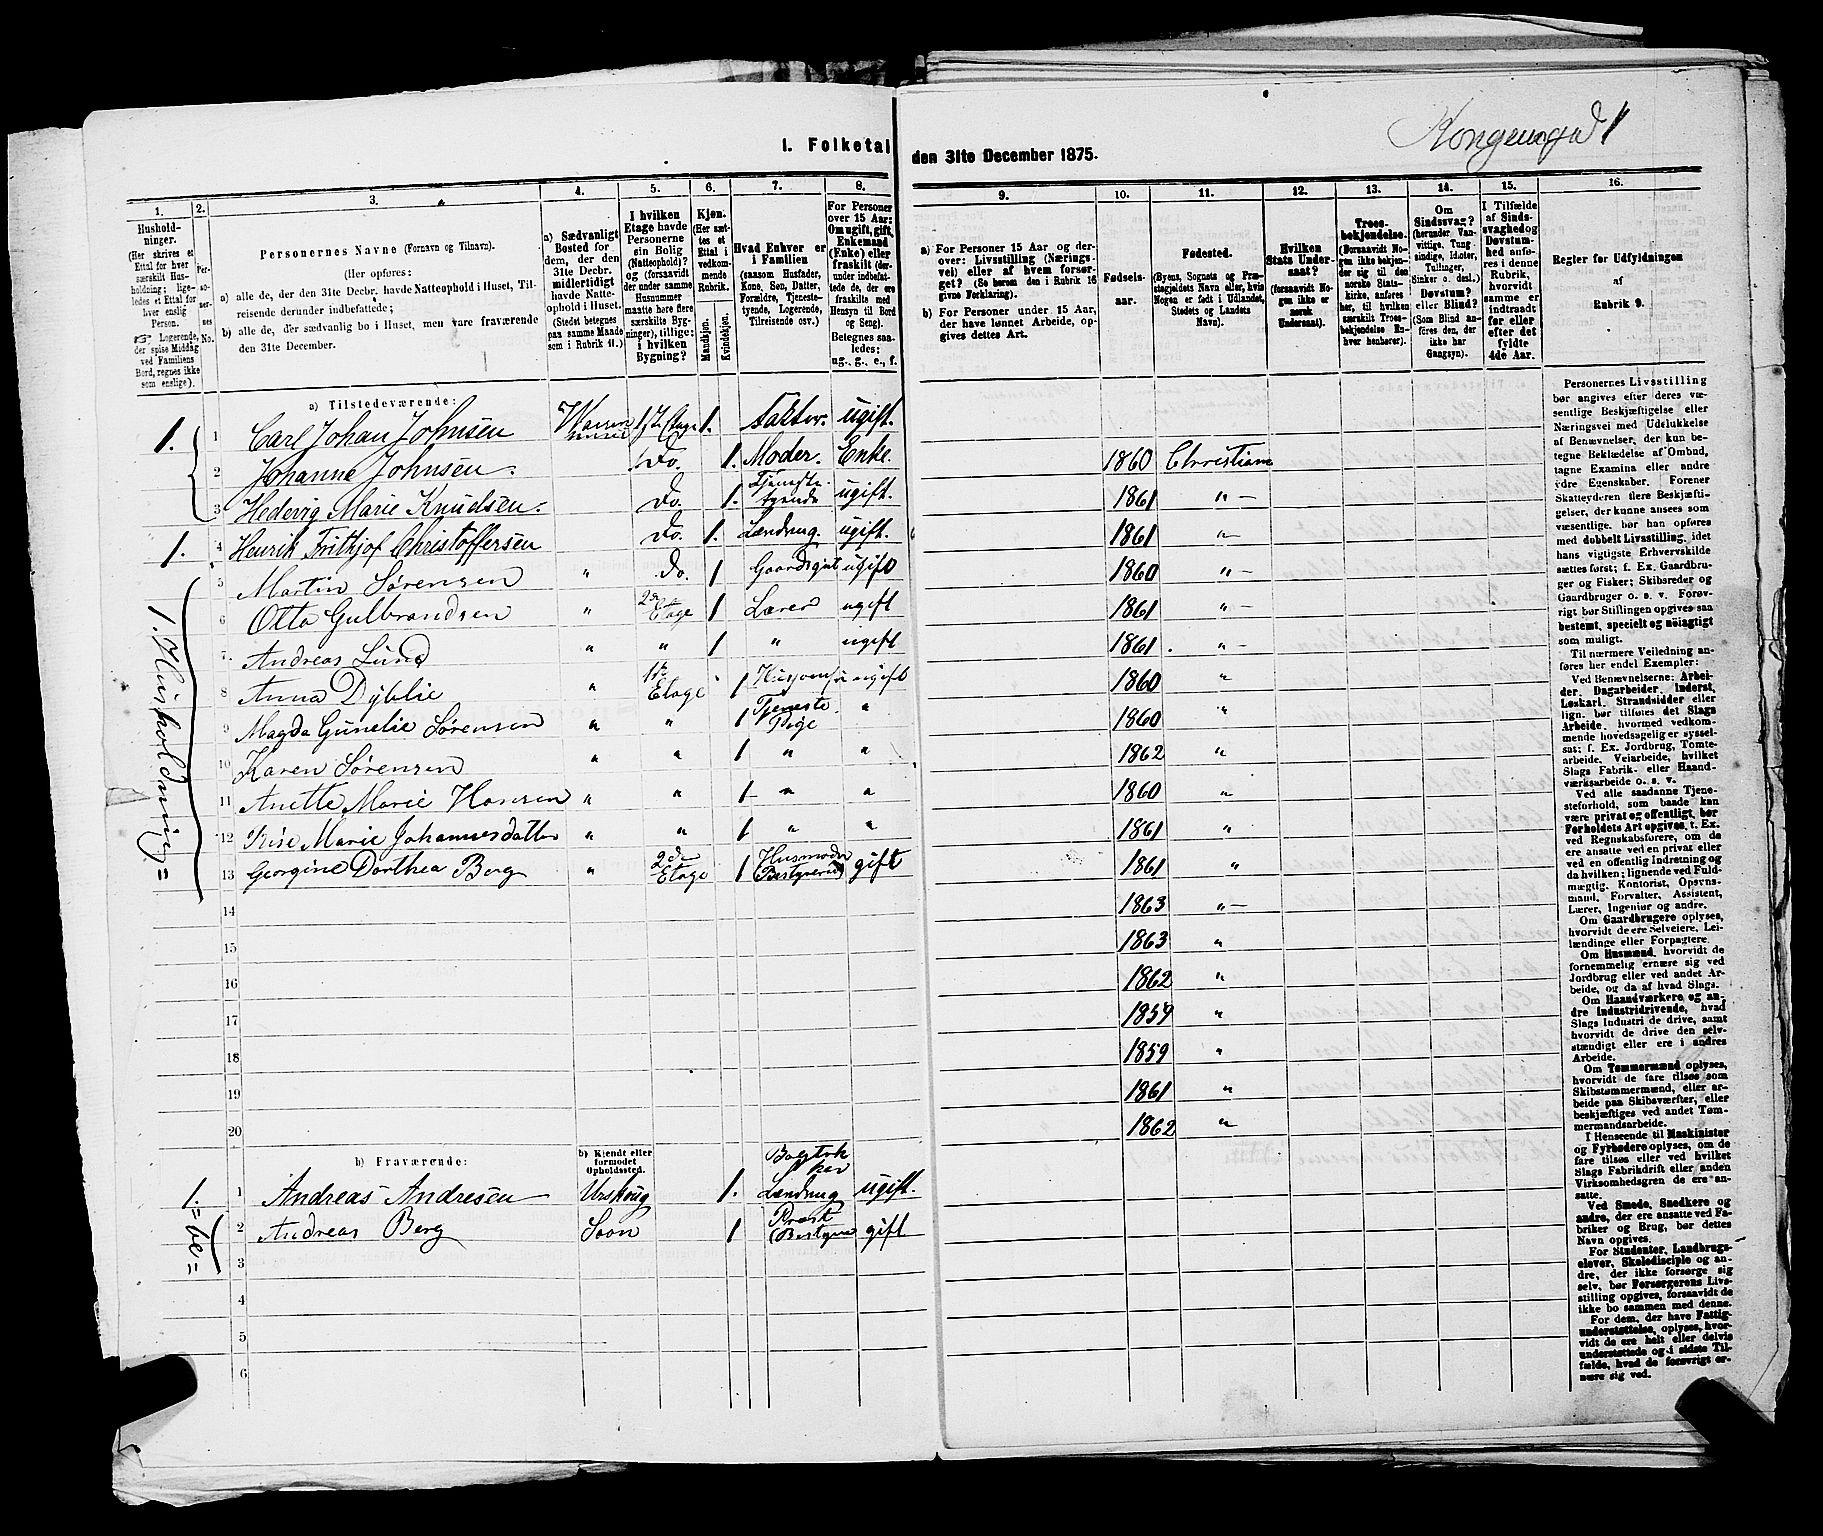 I. Folketal den 31te December 1875.
1. 2. 3. 4. 5. 6. 7. 8.
Hushold-
ninger.
(Her skrives et
Ettal for hver
særskilt Hus-
holdning; lige-
ledes et Ettal for
hver enslig
Person.
☞ Logerende,
der spise Middag
ved Familiens
Bord, regnes ikke
som enslige).
Per-
so-
ner-
nes
No.
Personernes Navne (Fornavn og Tilnavn).
(Her opføres:
a) alle de, der den 31te Decbr. havde Natteophold i Huset, Til-
reisende derunder indbefattede;
b) alle de, der sædvanlig bo i Huset, men vare fraværende
den 31te December.
a) Sædvanligt
Bosted for
dem, der den
31te Decbr.
midlertidigt
havde Natte-
ophold i Huset.
(Stedet betegnes
paa samme Maade
som i Rubrik 11.)
I hvilken
Etage havde
Personerne
sin Bolig
(Natteophold)?
og (forsaavidt
der under samme
Husnummer
maatte høre flere
særskilte Byg-
ninger), tillige:
i hvilken
Bygning?
Kjøn.
(Her sæt-
tes et
Ettal i
vedkom-
mende
Rubrik.
Mandkjøn.
Kvindekjøn.
Hvad Enhver er
i Familien
(saasom Husfader,
Kone, Søn, Datter,
Forældre, Tjeneste-
tyende, Logerende,
Tilreisende osv.)
For Personer
over 15 Aar:
Om ugift, gift,
Enkemand
(Enke) eller
fraskilt (der-
under indbefat-
tede de, der ere
fraskilte med
Hensyn til Bord
og Seng).
Betegnes saa-
ledes:
ug., g., e., f.
a) Tilstedeværende:
1. 1 Carl Johan Johnsen 1ste Etage 1. Faktor. ugift.
2 Johanne Johnsen. Do. 1. Moder. Enke.
3 Hedevig Marie Knudsen. Do. 1. Tjeneste tyende ugift.
1. 4 Henrik Frithjof Christoffersen Do. 1. ugift.
5 Martin Sørensen " Do. 1 ugift
6 Otto Gulbrandsen " 2den Etage 1 Lærer ugift
7. Andreas Lund " " 1 " ugift
8 Anna Dyblie " 1ste Etage 1 ugift
9 Magda Gunelie Sørensen " " 1 Tjeneste Pige "
10 Karen Sørensen " " 1 " "
11 Anette Marie Hansen " " 1 " "
12 Marie Johannesdatter " " 1 " "
13 Georgine Dorthea Berg " 2den Etage 1 gift
1. Husholdning =
14
15
16
17
18
19
20
b) Fraværende:
b) Kjendt eller
formodet
Opholdssted.
1. 1 Andreas Andresen Urskoug 1. ugift.
2 Andreas Berg Soon 1 gift
3
4
5
6
Kongensgd 1
9. 10. 11. 12. 13. 14. 15. 16.
a) For Personer 15 Aar og der-
over: Livsstilling (Nærings-
vei) eller af hvem forsør-
get? (Se herom den i Rubrik 16
givne Forklaring).
b) For Personer under 15 Aar,
der have lønnet Arbeide, op-
gives dettes Art.
Fødsels-
aar.
Fødested.
(Byens, Sognets og Præ-
stegjeldets Navn eller, hvis
Nogen er født i Udlandet,
Stedets og Landets
Navn).
Hvilken
Stats Under-
saat?
(forsaavidt No-
gen ikke er
norsk
Undersaat).
Troes-
bekjendelse.
(Forsaavidt No-
gen ikke bekjen-
der sig til den
norske Stats-
kirke, anføres
her, til hvilken
særskilt Troes-
bekjendelse En-
hver henhører).
Om
Sindssvag?
(herunder Van-
vittige, Tung-
sindige, Idioter,
Tullinger,
Sinker o. desl.)
Døvstum?
eller Blind?
(Som Blind an-
føres den, der
ikke har
Gangsyn).
I Tilfælde
af Sinds-
svaghed og
Døvstum-
hed anfø-
res i denne
Rubrik,
hvorvidt
samme er
indtraadt
før eller
efter det
fyldte
4de Aar.
Regler for Udfyldningen
af
Rubrik 9.
1860 Christiania
1861 " –
1861 " –
1860 " –
1861 " –
1861. " –
1860 "
1860 "
1862 "
1860 "
1861 "
1861 "
1863 " –
1863 "
1862 "
1859 "
1859 "
1861 "
1862 "
Personernes Livsstilling
bør angives efter deres væ-
sentlige Beskjæftigelse eller
Næringsvei med Udelukkelse
af Benævnelser, der kun be-
tegne Beklædelse af Ombud,
tagne Examina eller andre
ydre Egenskaber. Forener
Skatteyderen flere Beskjæfti-
gelser, der kunne ansees som
væsentlige, bør han opføres
med dobbelt Livsstilling, idet
hans vigtigste Erhvervskilde
sættes først; f. Ex. Gaardbru-
ger og Fisker; Skibsreder og
Gaardbruger o. s. v. Forøv-
rigt bør Stillingen opgives saa
bestemt, specielt og nøiagtigt
som muligt.
Til nærmere Veiledning an-
føres her endel Exempler:
Ved Benævnelserne: Arbei-
der, Dagarbeider, Inderst,
Løskarl, Strandsidder eller
lign. bør tilføies det Slags
Arbeide, hvormed vedkom-
mende hovedsagelig er syssel-
sat; f. Ex. Jordbrug, Tomte-
arbeide, Veiarbeide, hvilket
Slags Fabrik- eller Haand-
værksarbeide o. s. v.
Ved alle saadanne Tjene-
steforhold, som baade kan
være privat og offentligt, bør
Forholdets Art opgives, t. Ex.
ved Regnskabsførere, om de
ere ansatte ved en privat eller
ved en offentlig Indretning og
da hvilken; lignende ved Fuld-
mægtig, Kontorist, Opsyns-
mand, Forvalter, Assistent,
Lærer, Ingeniør og andre.
Om Gaardbrugere oplyses,
hvorvidt de ere Selveiere, Lei-
lændinge eller Forpagtere.
Om Husmænd, hvorvidt de
fornemmelig ernære sig ved
Jordbrug eller ved andet Ar-
beide, og da af hvad Slags.
Om Haandværkere og an-
dre Industridrivende, hvad
Slags Industri de drive, samt
hvorvidt de drive den selv-
stændigt eller ere i andres
Arbeide.
Om Tømmermænd oplyses,
hvorvidt de fare tilsøs som
Skibstømmermænd, eller ar-
beide paa Skibsværfter, eller
beskjæftiges ved andet Tøm-
mermandsarbeide.
I Henseende til Maskinister
og Fyrbødere oplyses, om de
fare tilsøs eller ved hvilket
Slags Fabrikdrift eller anden
Virksomhedsgren de ere an-
satte.
Ved Smede, Snedkere og
andre, der ere ansatte ved Fa-
briker og Brug, bør dettes
Navn opgives.
For Studenter, Landbrugs-
elever, Skoledisciple og an-
dre, der ikke forsørge sig
selv, bør Forsørgerens Livs-
stilling opgives, forsaavidt de
ikke bo sammen med denne.
For dem, der have Fattig-
understøttelse, oplyses, hvor-
vidt de ere helt eller delvis
understøttede og i sidste Til-
fælde, hvad de forøvrigt er-
nære sig ved.